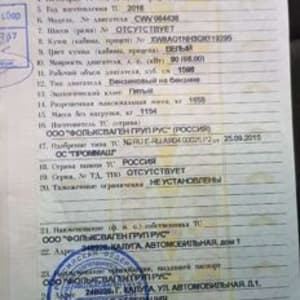 5. Год изготовления ТС 2016
6. Модель, № двигателя CWV 064436
7. Шасси (рама) № ОТСУТСТВУЕТ
8. Кузов (кабина, прицеп) №
9. Цвет кузова (кабины, прицепа) БЕЛЫЙ
10. Мощность двигателя, л. с. (кВт) 90
11. Рабочий объем двигателя, куб. см 1598
12. Тип двигателя Бензиновый на бензине
13. Экологический класс Пятый
14. Разрешенная максимальная масса, кг
15. Масса без нагрузки, кг 1154
16. Изготовитель ТС (страна)
ООО "ФОЛЬКСВАГЕН ГРУП РУС" (РОССИЯ)
17. Одобрение типа ТС № от 25.09.2015
ОС "ПРОММАШ"
18. Страна вывоза ТС РОССИЯ
19. Серия, № ТД, ТПО ОТСУТСТВУЕТ
20. Таможенные ограничения НЕ УСТАНОВЛЕНЫ
21. Наименование (ф. и. о.) собственника ТС
ООО "ФОЛЬКСВАГЕН ГРУП РУС"
22. Адрес КАЛУГА, АВТОМОБИЛЬНАЯ, дом 1
23. Наименование организации, выдавшей паспорт
ООО "ФОЛЬКСВАГЕН ГРУП РУС"
24. Адрес Г. КАЛУГА, УЛ. АВТОМОБИЛЬНАЯ, Д.1,